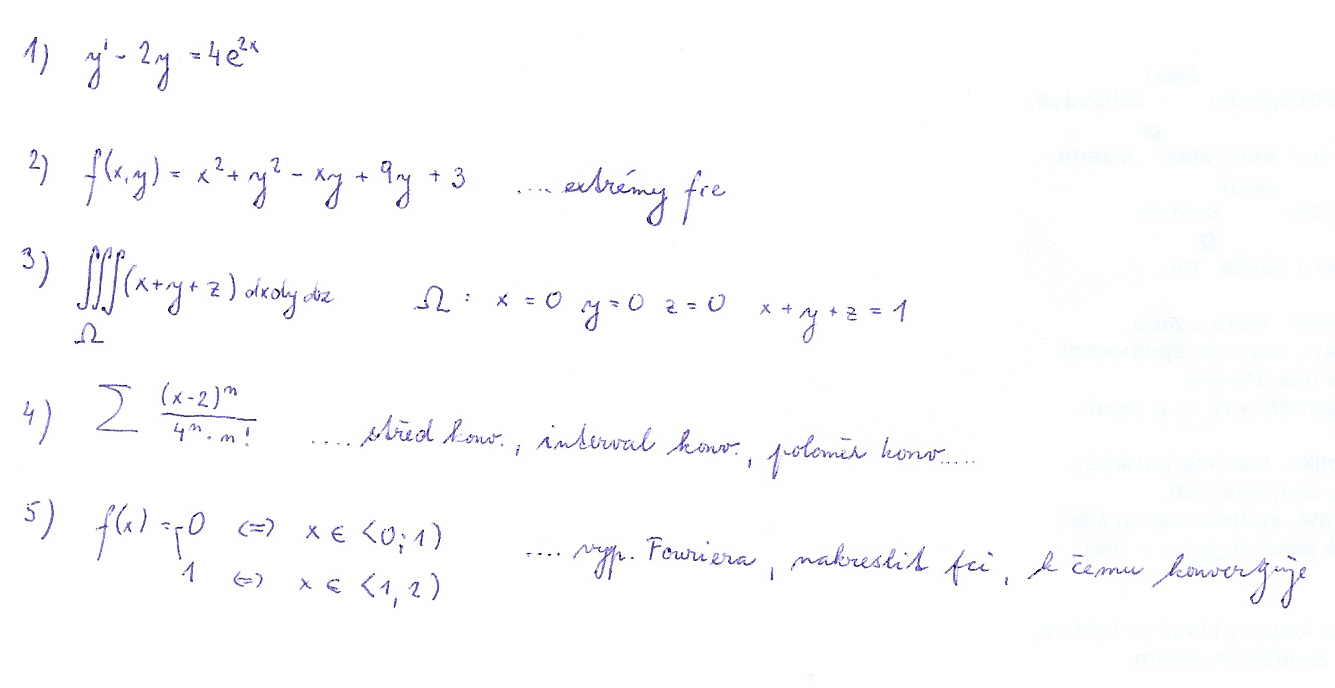 1) y' - 2y = 4e^{2x}
2) f(x,y) = x² + y² - xy + 9y + 3 .... extrémy fce
3) ∭_Ω (x+y+z) dxdydz Ω : x = 0 y = 0 z = 0 x + y + z = 1
4) ∑ (x-2)^n / (4^n · n!) .... střed konv., interval konv., poloměr konv....
5) f(x) = 0 <=> x ∈ <0; 1)
1 <=> x ∈ <1, 2) .... vyp. Fouriera, nakreslit fci, k čemu konverguje